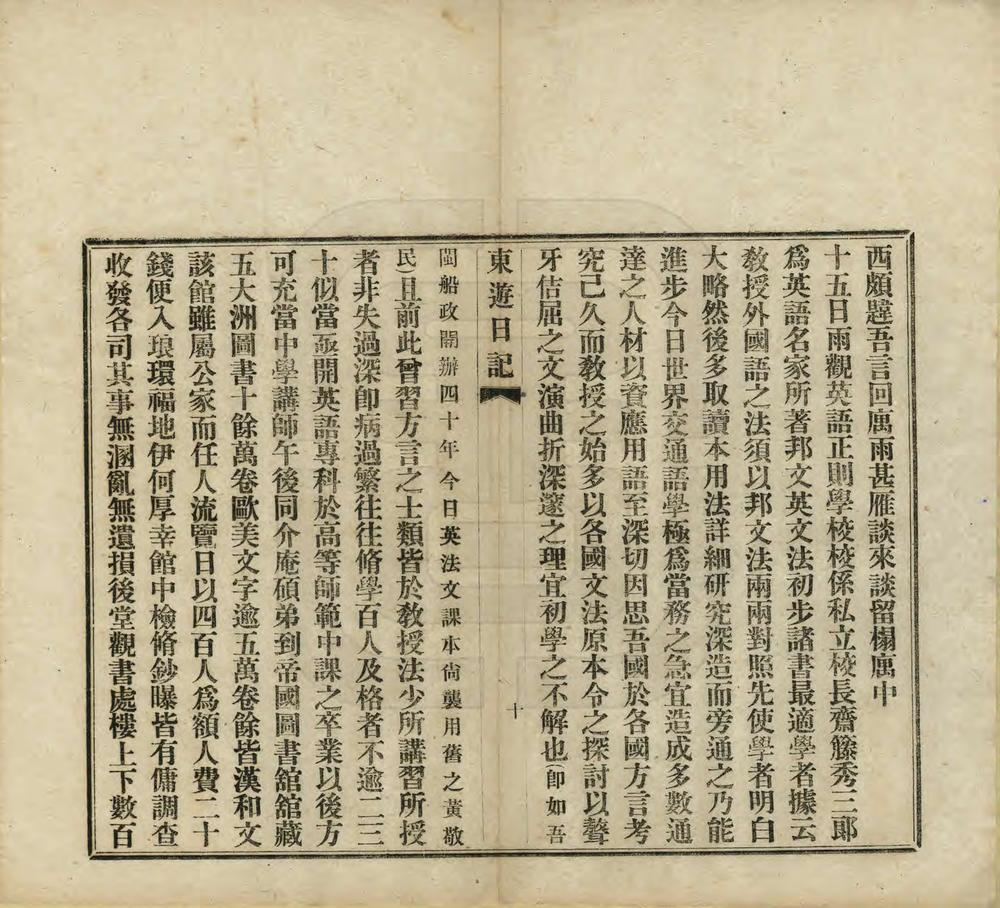 西頗韙吾言回寓雨甚雁談來談留榻寓中
十五日雨觀英語正則學校校係私立校長齋籐秀三郎
爲英語名家所著邦文英文法初步諸書最適學者據云
敎授外國語之法須以邦文法兩兩對照先使學者明白
大略然後多取讀本用法詳細硏究深造而旁通之乃能
進步今日世界交通語學極爲當務之急宜造成多數通
達之人材以資應用語至深切因思吾國於各國方言考
究己久而敎授之始多以各國文法原本令之探討以聱
牙佶屈之文演曲折深邃之理宜初學之不解也(即如吾
東遊日記
十
閩船政開辦四十年今日英法文課本尙襲用舊之黃敬
民)且前此曾習方言之士類皆於敎授法少所講習所授
者非失過深卽病過繁往往脩學百人及格者不逾二三
十似當亟開英語專科於高等師範中課之卒業以後方
可充當中學講師午後同介庵碩弟到帝國圖書舘舘藏
五大洲圖書十餘萬卷歐美文字逾五萬卷餘皆漢和文
該館雖屬公家而任人流覽日以四百人爲額人費二十
錢便入琅環福地伊何厚幸館中檢脩鈔曝皆有傭調查
收發各司其事無溷亂無遺損後堂觀書處樓上下數百